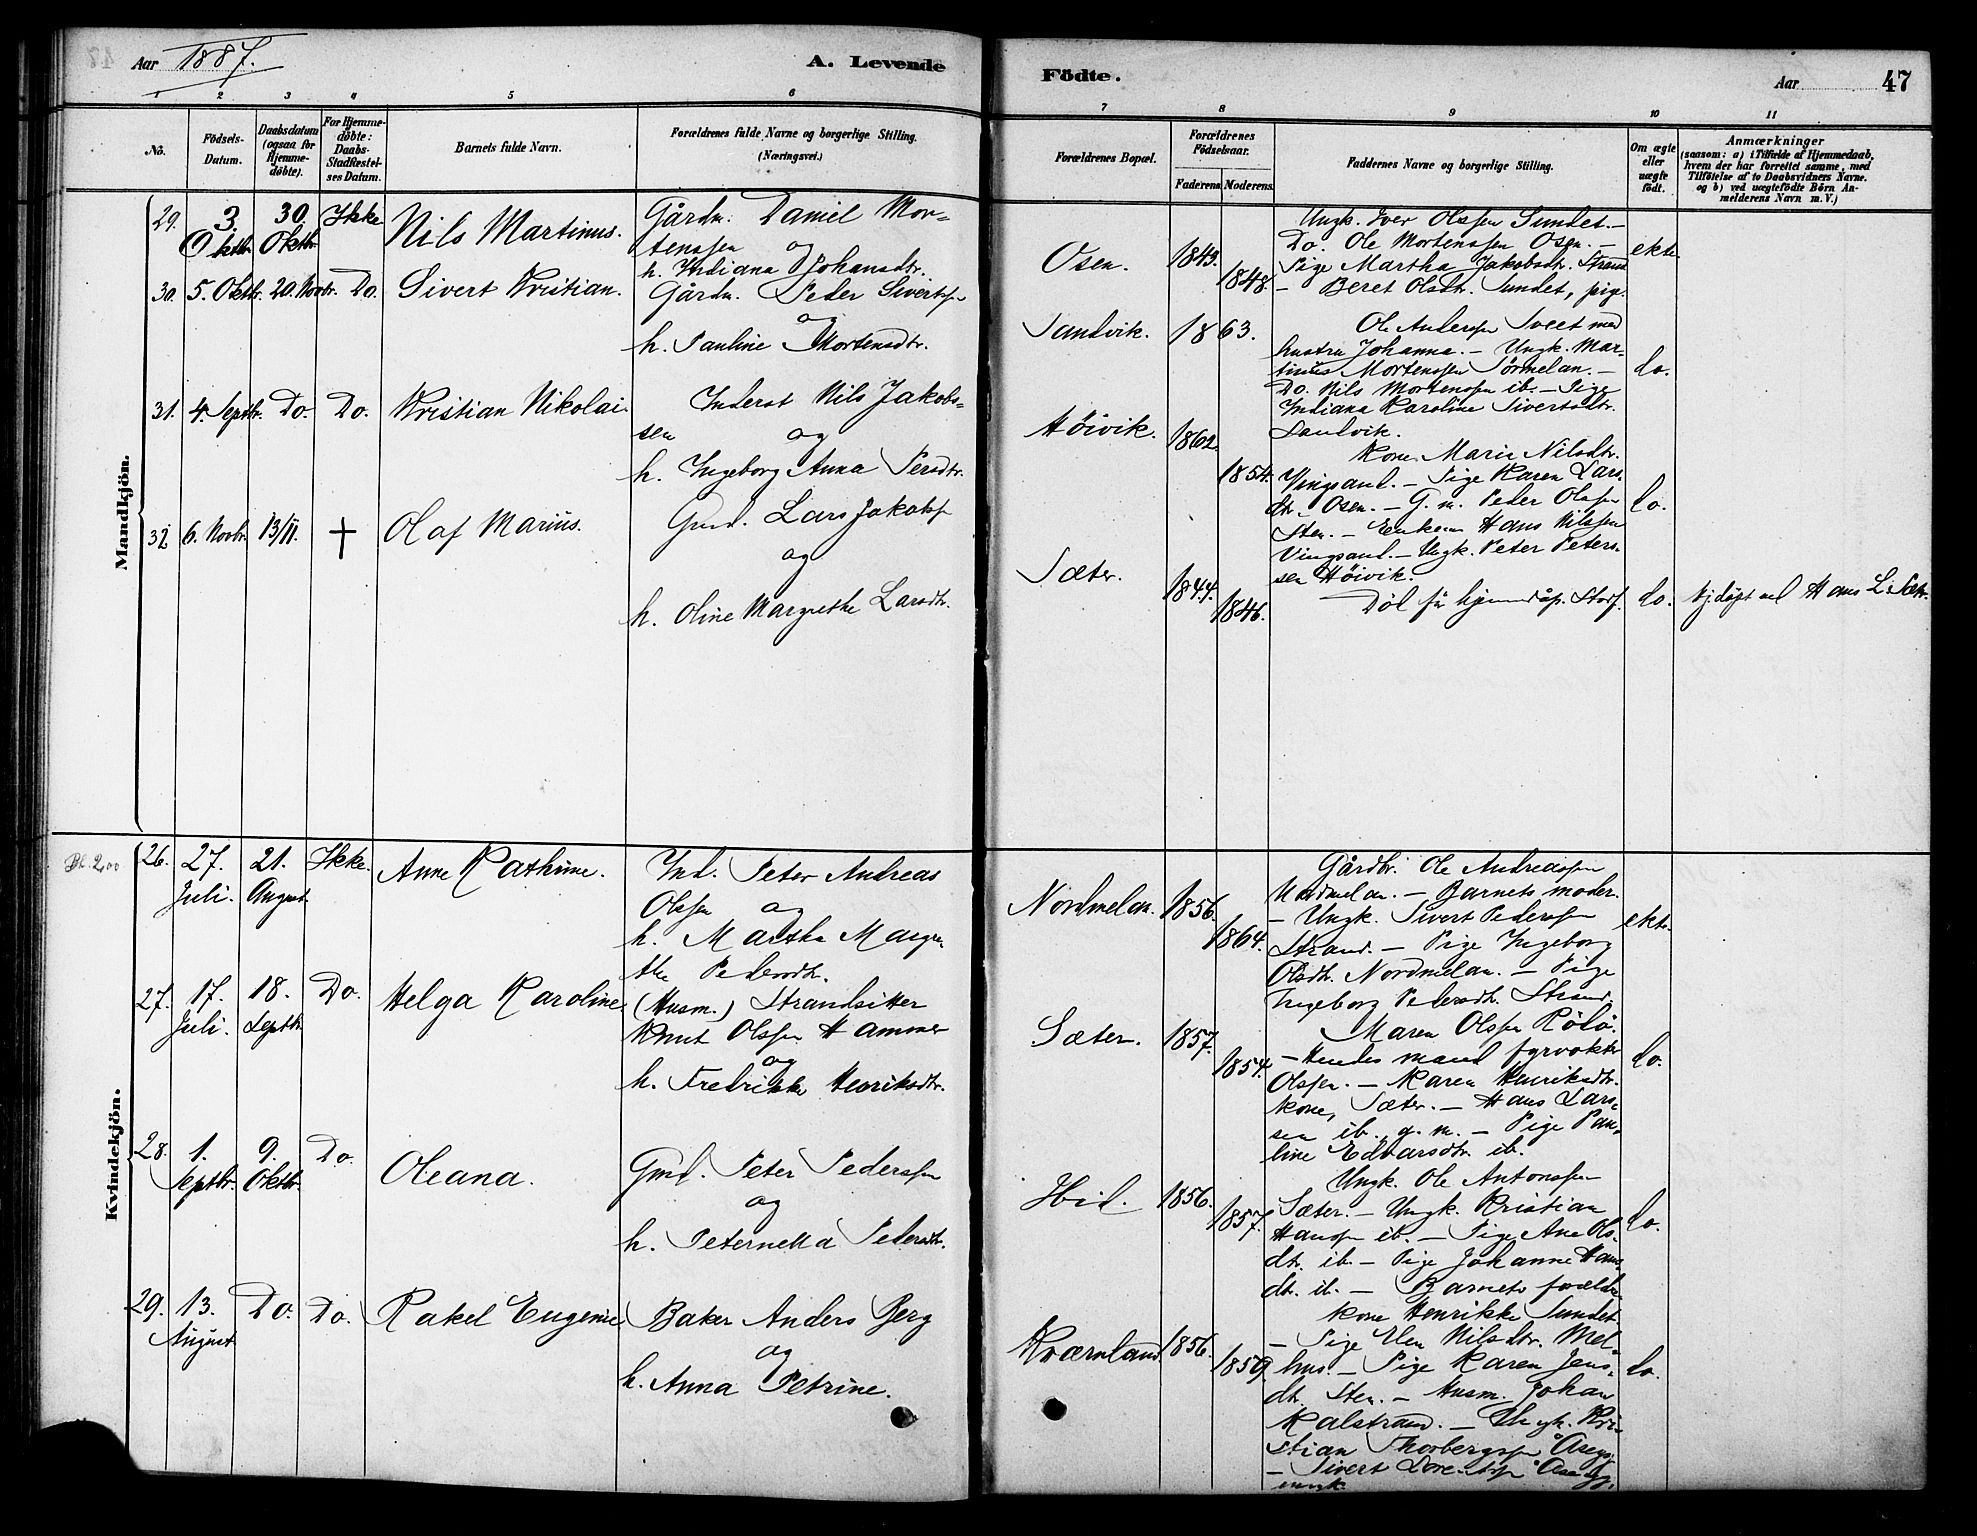 Aar 1887.
A. Levende
Födte.
Aar 47
1 2 3 4 5 6 7 8 9 10 11
No.
Födsels-
Datum.
Daabsdatum
(ogsaa for
Hjemme-
døbte).
For Hjemme-
døbte:
Daabs-
Stadfæstel-
ses Datum.
Barnets fulde Navn.
Forældrenes fulde Navne og borgerlige Stilling.
(Næringsvei.)
Forældrenes Bopæl.
Forældrenes
Födselsaar.
Faderens. Moderens.
Faddernes Navne og borgerlige Stilling.
Om ægte
eller
uægte
født.
Anmærkninger
(saasom: a) i Tilfælde af Hjemmedaab,
hvem der har forrettet samme, med
Tilföielse af to Daabsvidners Navne.
og b) ved uægtefödte Börn An-
melderens Navn m. V.)
Mandkjön.
29.
3.
Oktbr.
30.
Oktbr.
Ikke
Nils Martinus.
Gårdm. Daniel Mor-
tenssen og
h. Indiana Johansdtr.
Osen.
1843.
1848.
Ungk. Iver Olssen Sundet. -
Do. Ole Mortenssen Osen. -
Pige Martha Jakobsdtr. Strand
- Beret Olsdtr. Sundet, pige.
ekte
30.
5. Oktbr.
20. Novbr.
Do.
Sivert Kristian.
Gårdm. Peder Sivertss.
og
h. Pauline Mortensdtr.
Sandvik.
1863.
Ole Anderssen Sveet med
hustru Johanna. - Ungk. Mar-
tinus Mortenssen Sørmelan. -
Do. Nils Mortenssen ib. - Pige
Indiana Karoline Sivertsdtr.
Sandvik.
do.
31.
4. Septbr.
Do.
Do.
Kristian Nikolai
Inderst Nils Jakobs-
sen og
h. Ingeborg Anna Persdtr.
Høivik.
1862
1854.
Kone Marie Nilsdtr.
Vingsand. - Pige Karen Lars-
dtr. Osen. - G. m. Peder Olssen
Sten. - Enkem. Hans Nilssen
Vingsand. - Ungk. Peter Peters-
sen Høivik.
do.
32
6. Novbr.
13/11.
†
Olaf Marius.
Gmd. Lars Jakobss.
og
h. Oline Margrethe Larsdtr.
Sæter.
1844.
1846.
Død før hjemmedåp. Stadf.
do.
Hjdøpt ved Hans L. Sæter.
Kvindekjön.
Bl. 2,00
26.
27.
Juli.
21.
August
Ikke.
Anne Kathrine.
Ind. Peter Andreas
Olssen og
h. Martha Margre-
the Pedersdtr.
Nordmelan.
1856.
1864.
Gårdbr. Ole Andreassen
Nordmelan. - Barnets moder.
- Ungk. Sivert Pederssen
Strand. - Pige Ingeborg
Olsdtr. Nordmelan. - Pige
Ingeborg Pedersdtr. Strand.
ekte.
27.
17.
Juli.
18.
Septbr.
Do.
Helga Karoline
(Husm.) Strandsitter
Knut Olssen Hammer
og
h. Fredrikke Henriksdtr.
Sæter.
1857.
1854.
Maren Olssen
- Hendes mand fyrvokter
Olssen. - Karen Henriksdtr.
kone, Sæter. - Hans Lars-
sen ib. g. m. - Pige Pau-
line Edvarsdtr. ib.
do.
28.
1.
Septbr.
9.
Oktbr.
Do.
Oleana.
Gmd. Peter Pederssen
og
h. Peternella Pedersdtr.
Hid.
1856.
1857.
Ungk. Ole Antonssen
Sæter. - Ungk. Kristian
Hanssen ib. - Pige Ane Ols-
dtr. ib. - Pige Johanne Hans-
dtr. ib. - Barnets foreldre.
do.
29.
13.
August
Do.
Do.
Rakel Eugenie
Baker Anders Berg
og
h. Anna Petrine.
Kværnland.
1856.
1859.
Kone Henrikke Sundet
- Pige Elen Nilsdtr. Mel-
hus. - Pige Karen Jens-
dtr. Sten. - Husm. Johan
Kalstrand. - Ungk. Kri-
stian Thorbergssen Åsegg
- Sivert Lorentss. Åsegg,
ungk.
do.